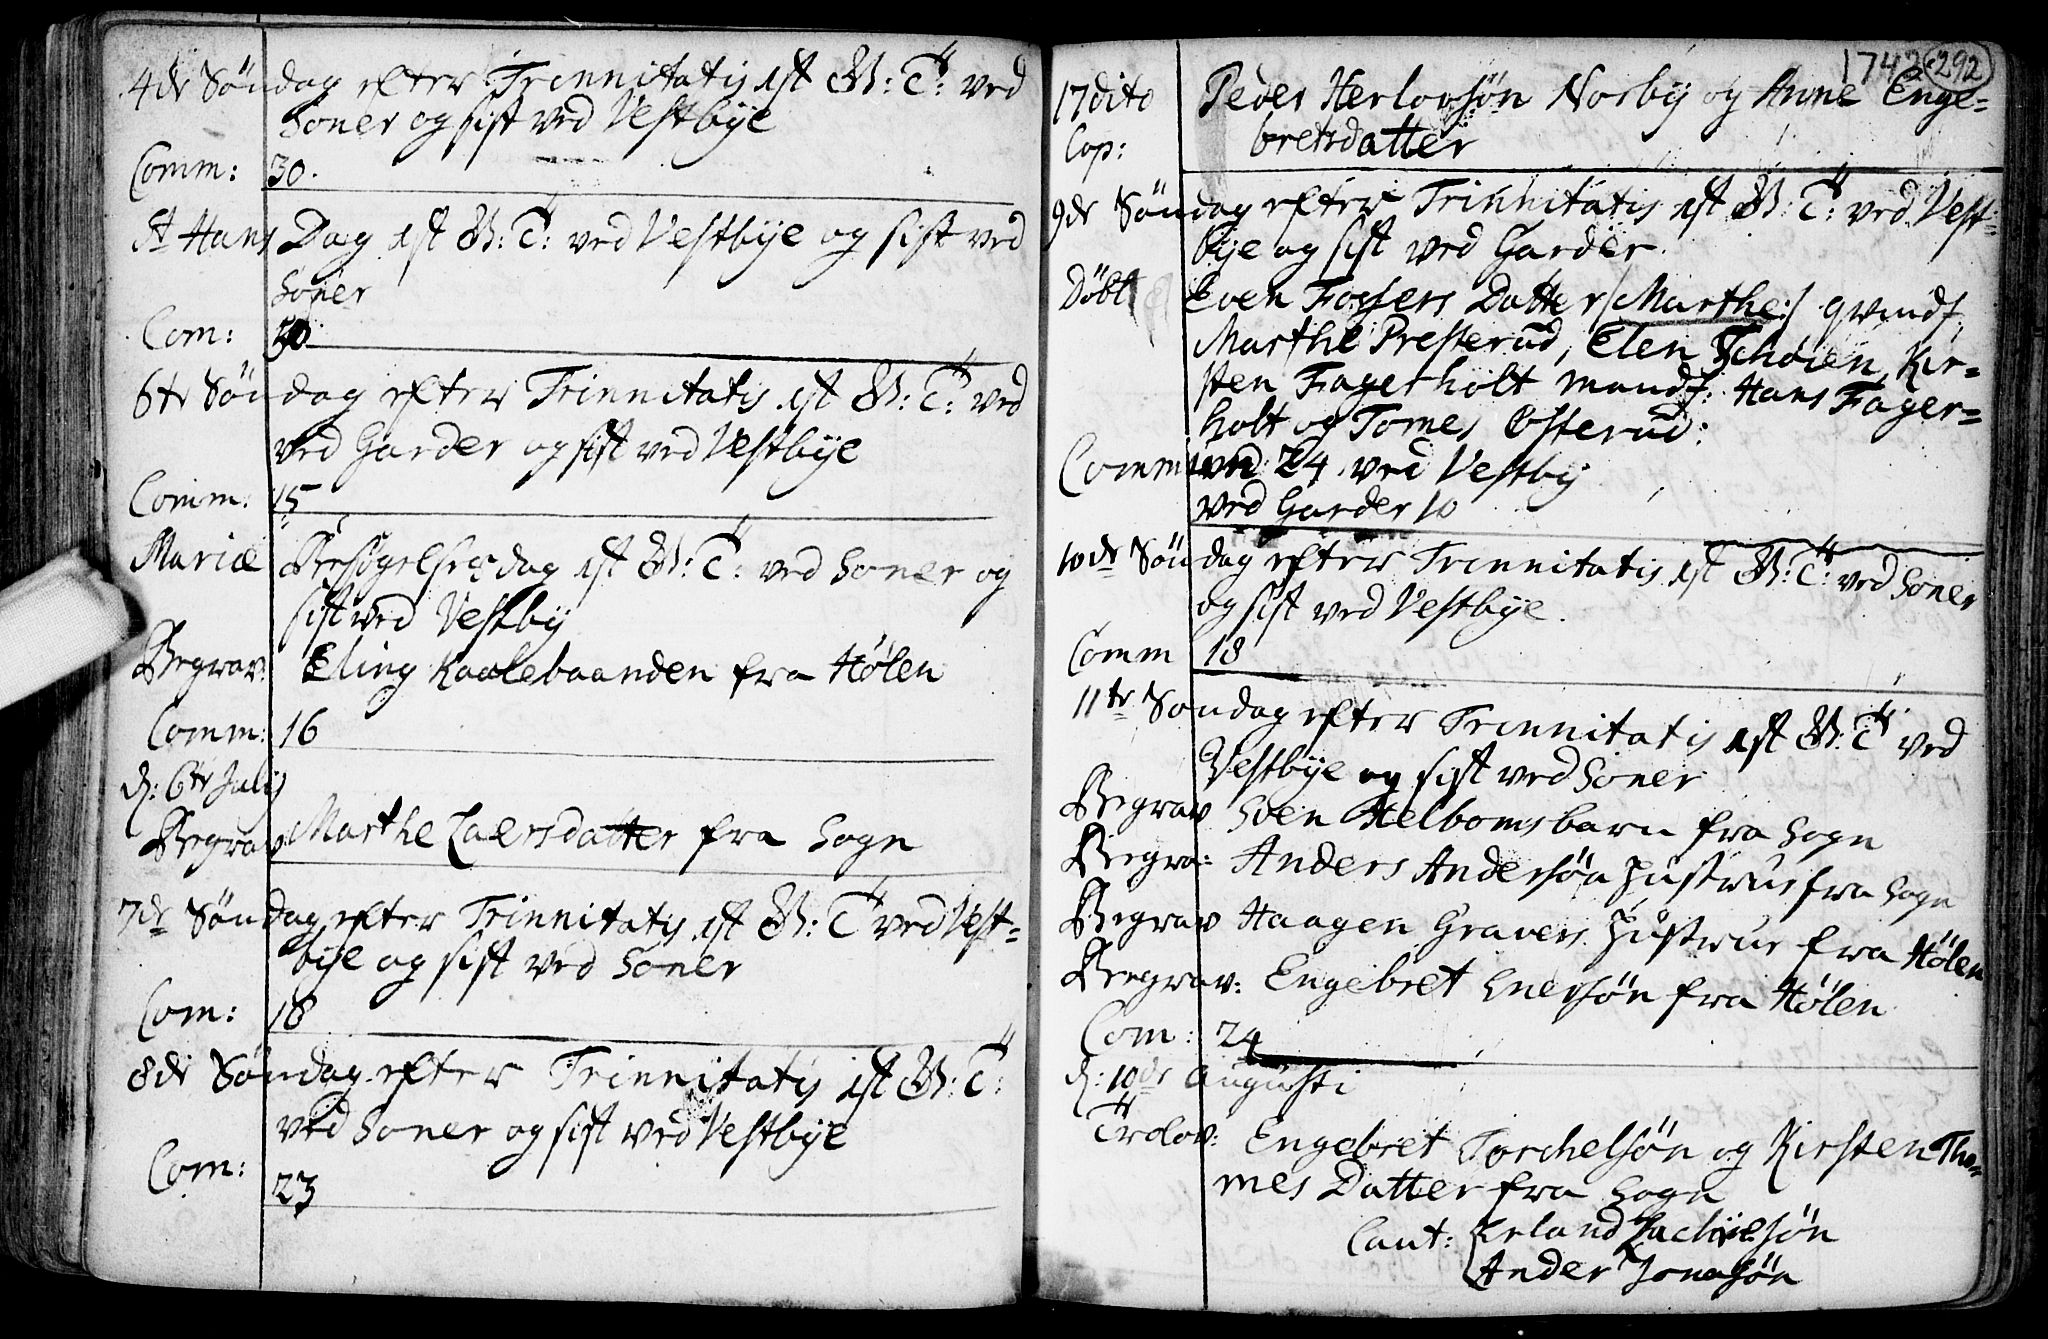 4de Søndag efter Trinnitatis est G: T: ved
Soner og sist ved Vestbye
Comm: 30.
St Hans Dag est G: T: ved Vestbye og sist ved
Soner
Com: 50
6te Søndag efter Trinnitatis est G: T: ved
ved Garder og sist ved Vestbye
Comm: 15
Mariæ Besøgelsesdag est G: T: ved Soner og
sist ved Vestby
Begrav: Eling Kaalebaanden fra Hølen
Comm: 16
d: 6te Julij
Begrav: Marthe Laersdatter fra Sogn
7de Søndag efter Trinnitatis est G: T: ved Vest=
bye og sist ved Soner
Com: 18
8de Søndag efter Trinnitatis est G: T:
ved Soner og sist ved Vestbye
Com: 23
1742 292
17 dito Peder Herlovsøn Norby og Anne Enge=
Cop: bretsdatter
9de Søndag efter Trinnitatis est G: T: ved Vest=
bye og sist ved Garder
Døbt Even Fossers Datter /: Marthe :/ qvindf.
Marthe Presterud, Elen Schoien, Kir=
sten Fagerholt mandf: Hans Fager=
holt og Tomes Osterud:
Comm 24 ved Vestby
ved Garder 10
10de Søndag efter Trinnitatis est G: T: ved Soner
og sist ved Vestbye.
Comm 18
11te Søndag efter Trinnitatis est G: T: ved
Vestbye og sist ved Soner
Begrav Soen Helboms barn fra Sogn
Begra: Anders Andersøn Hustrue fra Sogn
Begrav Haagen Gravers Hustrue fra Hølen
Begrav: Engebret Enersøn fra Hølen
Com: 24
d: 10de Augusti
Trolov: Engebret Torchelsøn og Kirsten Tho=
mes Datter fra Sogn
Caut: Erland Zachriesøn
Ander Jonasøn